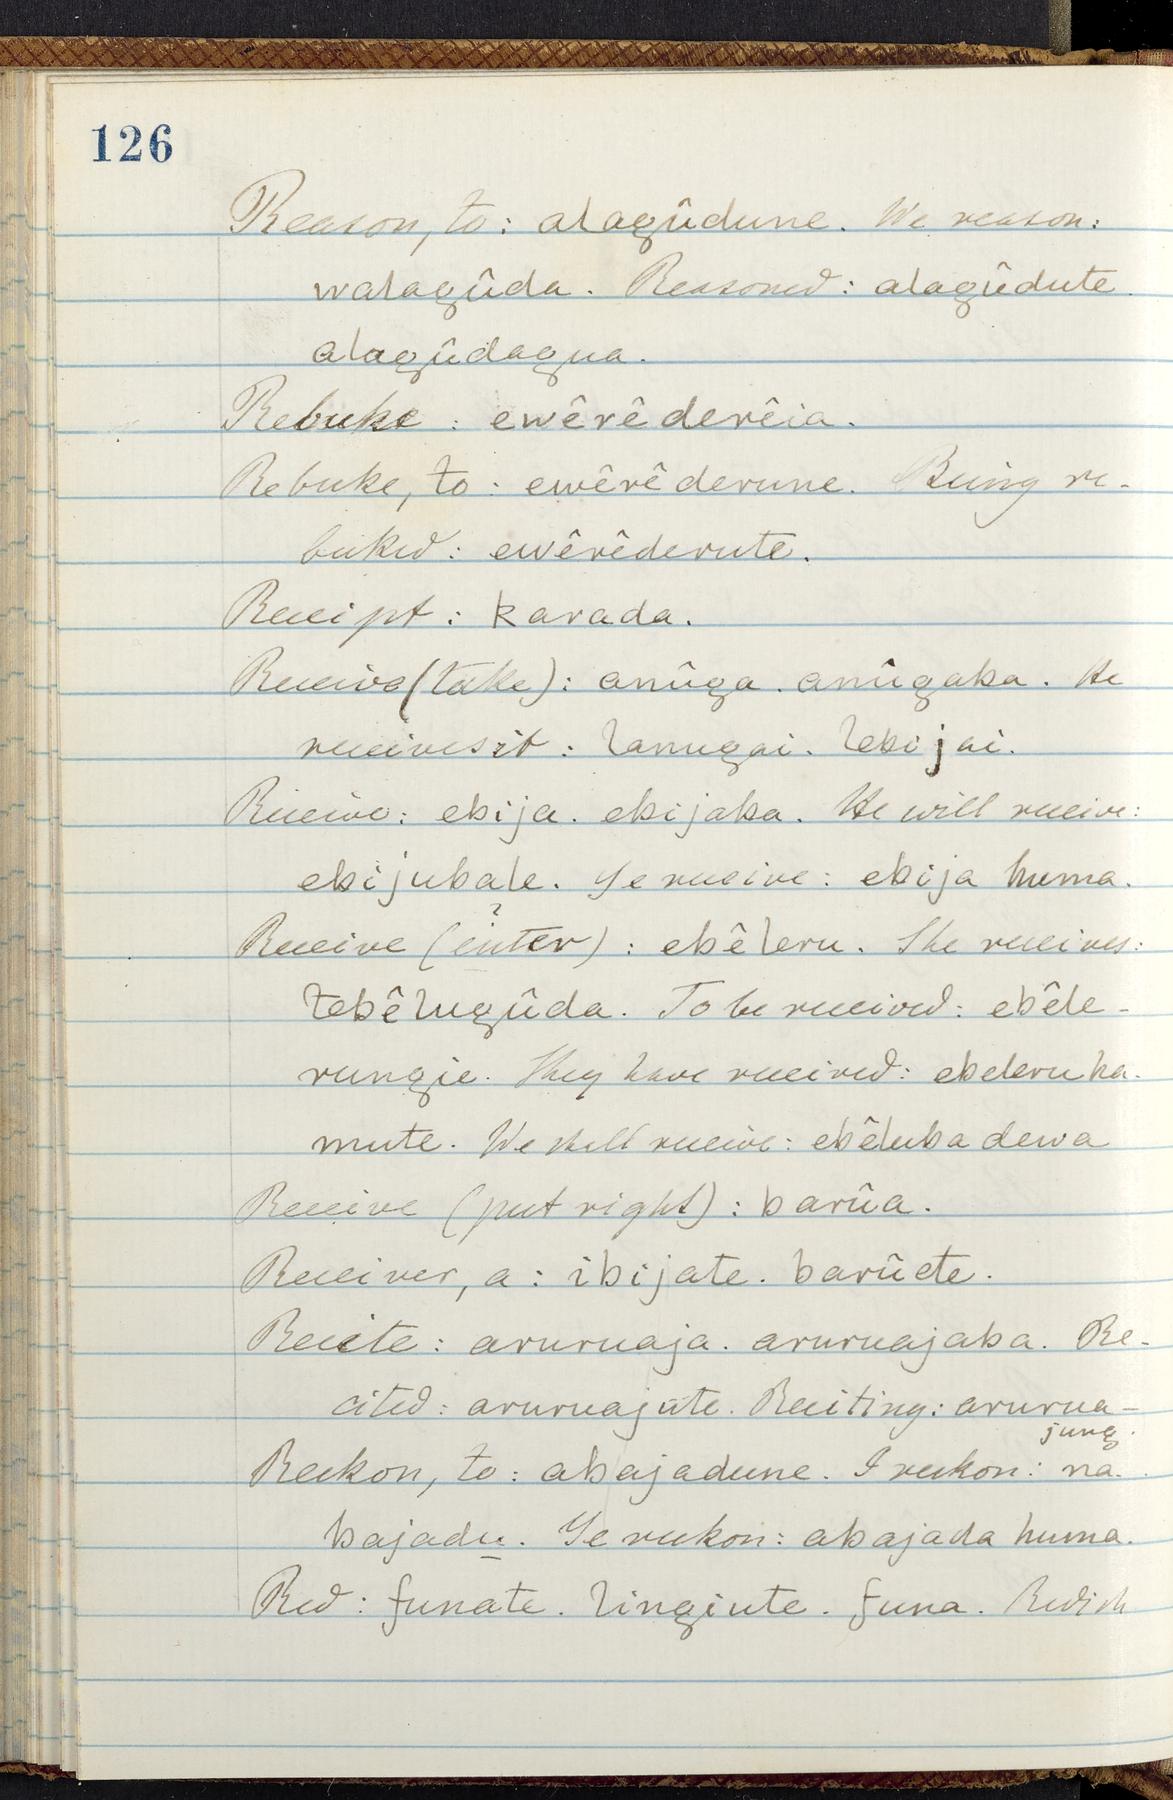 126
Reason, to: alagûdune. We reason:
walagûda. Reasoned: alagûdute
alagûdagua.
Rebuke: ewêrêderêia.
Rebuke, to: ewêrêderune. Being re-
buked: ewêrêderute.
Receipt: karada.
Receive (take): anûga. anûgaba. He
receives it: lanugai. lebijai.
Receive: ebija. ebijaba. He will receive:
ebijubale. Ye receive: ebija huma.
?
Receive (enter): ebêleru. She receives:
tebêlugûda. To be received: ebêle-
rungie. They have received: ebeleruha-
mute. We shall receive: ebêluba dewa
Receive (put right): barûa.
Receiver, a: ibijate. barûete.
Recite: aruruaja. aruruajaba. Re-
cited: aruruajute. Reciting: arurua-
jung.
Reckon, to: abajadune. I reckon: na-
bajadu. Ye reckon: abajada huma.
Red: funate. lingiute. funa. Redish